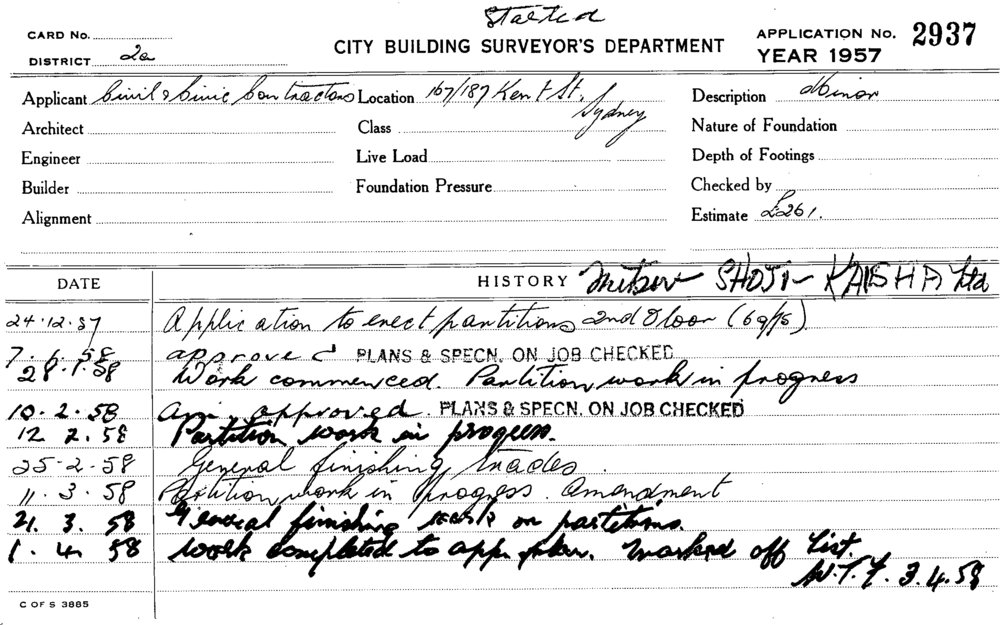 Started
CARD No.
CITY BUILDING SURVEYOR'S DEPARTMENT
APPLICATION No. 2937
DISTRICT 2a
YEAR 1957
Applicant Civil & Civic Contractors Location 167/187 Kent St, Sydney Description Minor
Architect Class Nature of Foundation
Engineer Live Load Depth of Footings
Builder Foundation Pressure Checked by
Alignment Estimate £261.
DATE HISTORY Mitsui SHOJI KAISHA Ltd
24.12.57 Application to erect partitions 2nd Floor
58 approved PLANS & SPECN. ON JOB CHECKED
28.1.58 Work commenced. Partition work in progress
10.2.58 approved. PLANS & SPECN. ON JOB CHECKED
12 2.58 Partition work in progress.
25-2-58 General finishing trades.
11.3.58 Partition work in progress. Amendment
21.3.58 General finishing work on partitions.
1.4.58 Work completed to app. plan. Marked off List.
3.4.58
C OF S 3885